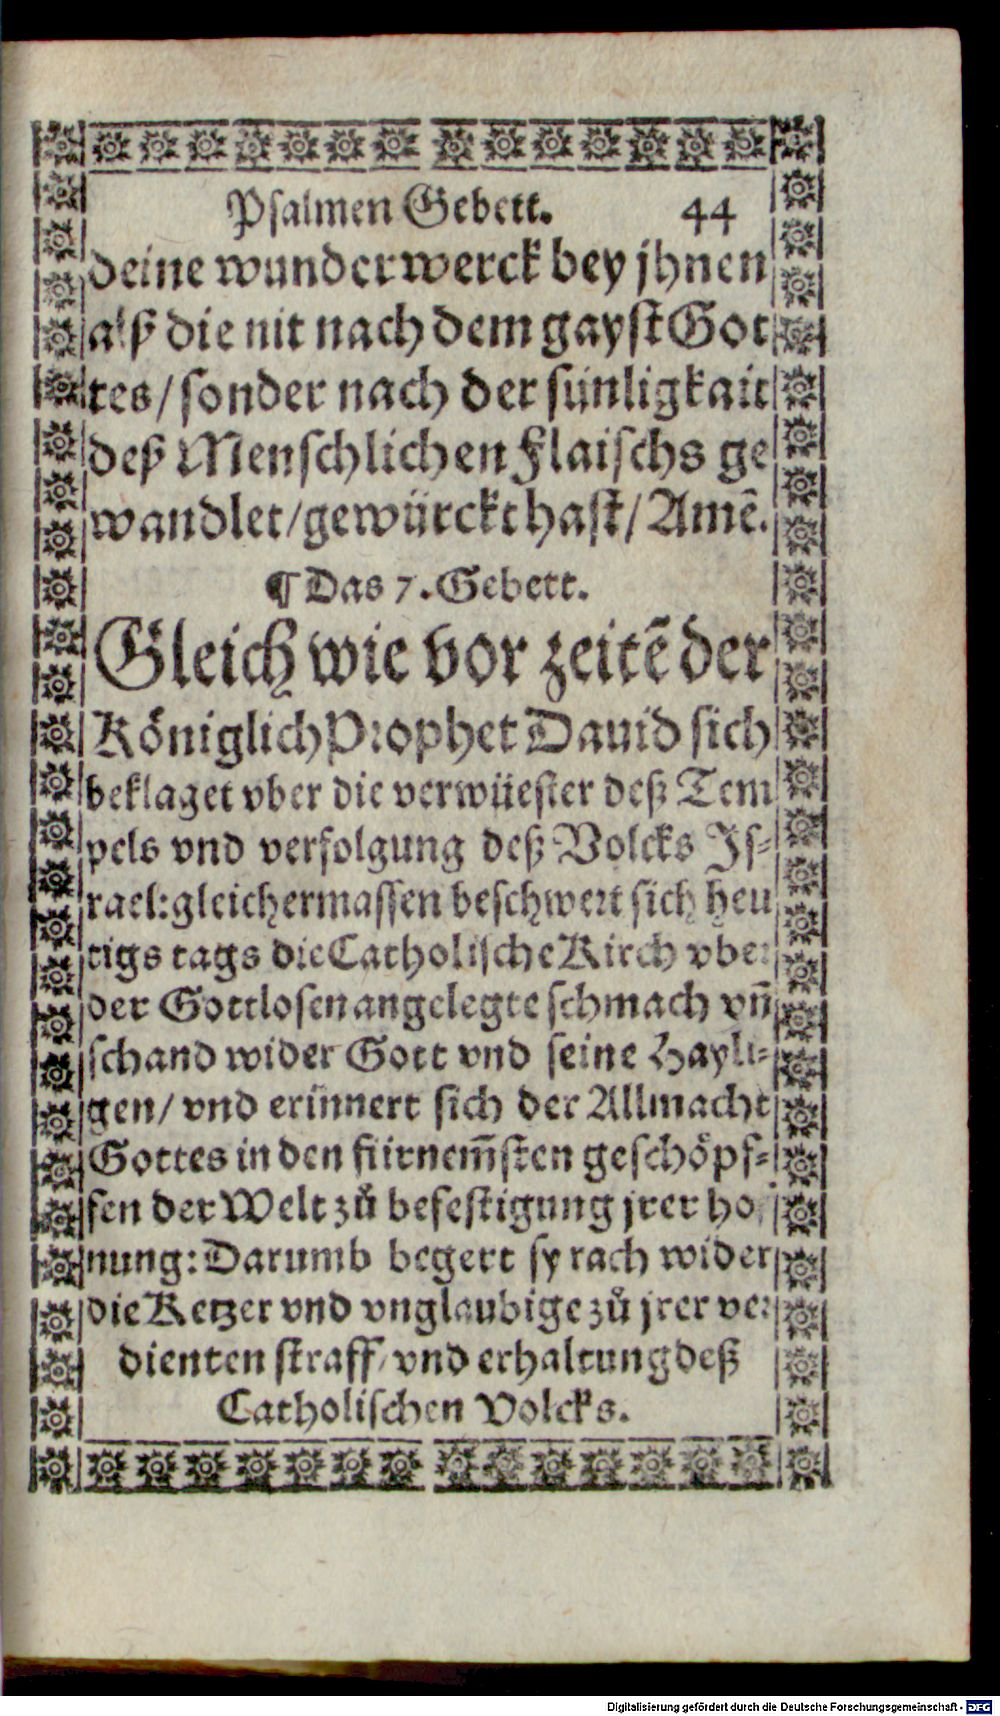 Psalmen Gebett. 44
deine wunderwerck bey jhnen
alß die nit nach dem gayst Got
tes/ sonder nach der siñligkait
deß Menschlichen Flaischs ge
wandlet/ gewürckt hast/ Amẽ.
¶ Das 7. Gebett.
Gleich wie vor zeitẽ der
Königlich Prophet Dauid sich
beklaget vber die verwüester deß Tem
pels vnd verfolgung deß Volcks Is-
rael: gleichermassen beschwert sich heu
tigs tags die Catholische Kirch vber
der Gottlosen angelegte schmach vñ
schand wider Gott vnd seine Hayli-
gen/ vnd erinnert sich der Allmacht
Gottes in den fürnem̃sten geschöpf-
fen der Welt zů befestigung jrer hof
nung: Darumb begert sy rach wider
die Ketzer vnd vnglaubige zů jrer ver
dienten straff/ vnd erhaltung deß
Catholischen Volcks.
Digitalisierung gefördert durch die Deutsche Forschungsgemeinschaft - DFG